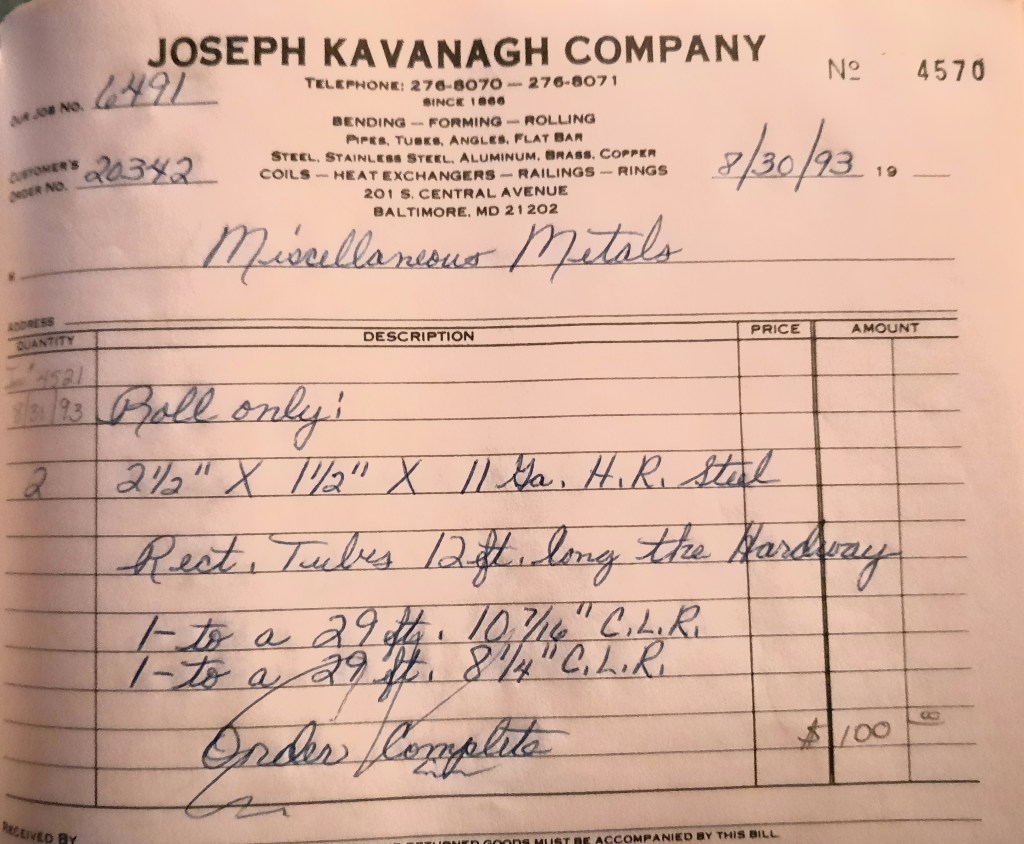 JOSEPH KAVANAGH COMPANY
Nº 4570
TELEPHONE: 276-8070 — 276-8071
SINCE 1866
OUR JOB NO. 6491
BENDING — FORMING — ROLLING
PIPES, TUBES, ANGLES, FLAT BAR
STEEL, STAINLESS STEEL, ALUMINUM, BRASS, COPPER
CUSTOMER'S ORDER NO. 20342
COILS — HEAT EXCHANGERS — RAILINGS — RINGS
8/30/93 19
201 S. CENTRAL AVENUE
BALTIMORE, MD 21202
Miscellaneous Metals
ADDRESS
QUANTITY DESCRIPTION PRICE AMOUNT
4521
8/31/93 Roll only:
2 2 1/2" X 1 1/2" X 11 Ga. H.R. Steel
Rect. Tubes 12 ft. long the Hardway
1-to a 29 ft. 10 7/16" C.L.R.
1-to a 29 ft. 8 1/4" C.L.R.
Order Complete $ 100 00
RECEIVED BY
RETURNED GOODS MUST BE ACCOMPANIED BY THIS BILL